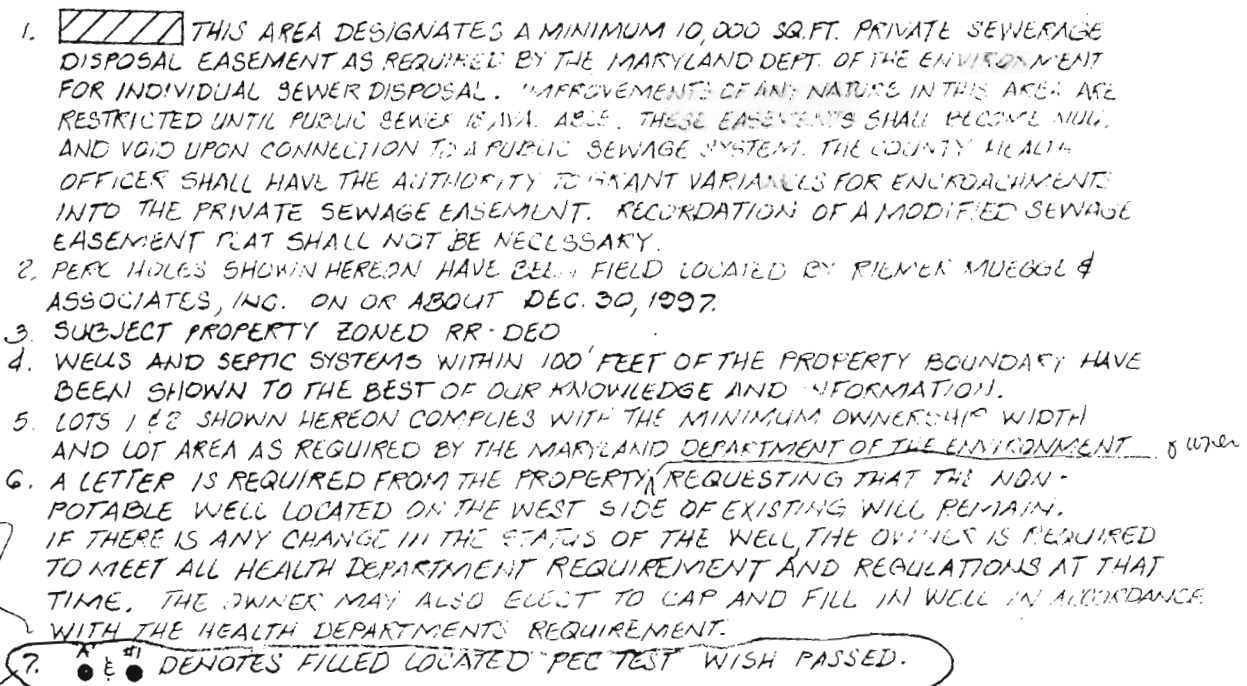 1. THIS AREA DESIGNATES A MINIMUM 10,000 SQ.FT. PRIVATE SEWERAGE
DISPOSAL EASEMENT AS REQUIRED BY THE MARYLAND DEPT. OF THE ENVIRONMENT
FOR INDIVIDUAL SEWER DISPOSAL. IMPROVEMENTS OF ANY NATURE IN THIS AREA ARE
RESTRICTED UNTIL PUBLIC SEWER IS AVAILABLE. THESE EASEMENTS SHALL BECOME NULL
AND VOID UPON CONNECTION TO A PUBLIC SEWAGE SYSTEM. THE COUNTY HEALTH
OFFICER SHALL HAVE THE AUTHORITY TO GRANT VARIANCES FOR ENCROACHMENTS
INTO THE PRIVATE SEWAGE EASEMENT. RECORDATION OF A MODIFIED SEWAGE
EASEMENT PLAT SHALL NOT BE NECESSARY.
2. PERC HOLES SHOWN HEREON HAVE BEEN FIELD LOCATED BY RIEMER MUEGGE &
ASSOCIATES, INC. ON OR ABOUT DEC. 30, 1997.
3. SUBJECT PROPERTY ZONED RR-DEO
4. WELLS AND SEPTIC SYSTEMS WITHIN 100' FEET OF THE PROPERTY BOUNDARY HAVE
BEEN SHOWN TO THE BEST OF OUR KNOWLEDGE AND INFORMATION.
5. LOTS 1 & 2 SHOWN HEREON COMPLIES WITH THE MINIMUM OWNERSHIP WIDTH
AND LOT AREA AS REQUIRED BY THE MARYLAND DEPARTMENT OF THE ENVIRONMENT
owner
6. A LETTER IS REQUIRED FROM THE PROPERTY REQUESTING THAT THE NON-
POTABLE WELL LOCATED ON THE WEST SIDE OF EXISTING WILL REMAIN.
IF THERE IS ANY CHANGE IN THE STATUS OF THE WELL, THE OWNER IS REQUIRED
TO MEET ALL HEALTH DEPARTMENT REQUIREMENT AND REGULATIONS AT THAT
TIME. THE OWNER MAY ALSO ELECT TO CAP AND FILL IN WELL IN ACCORDANCE
WITH THE HEALTH DEPARTMENTS REQUIREMENT.
7. A' & #1 DENOTES FILLED LOCATED PEC TEST WISH PASSED.